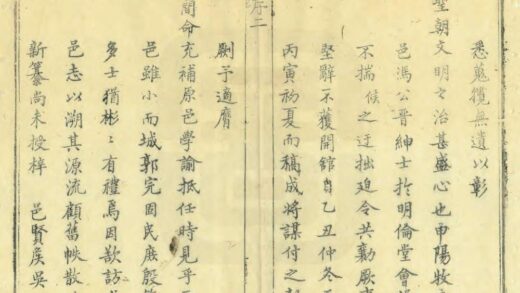 悉蒐獵無遺以彰
聖朝文明之治甚盛心也申陽牧
邑馮公晋紳士於明倫堂會
不揣候之迂拙迫令共勷厥
堅辭不獲開館自乙丑仲冬
丙寅初夏而稿成將謀付之
序二
剻予適膺
簡命充補原邑學諭抵任時見乎
邑雖小而城郭完固民庶殷
多士猶彬彬有禮焉因欲訪
邑志以溯其源流顧舊帙散
新纂尚未授梓 邑賢侯吳